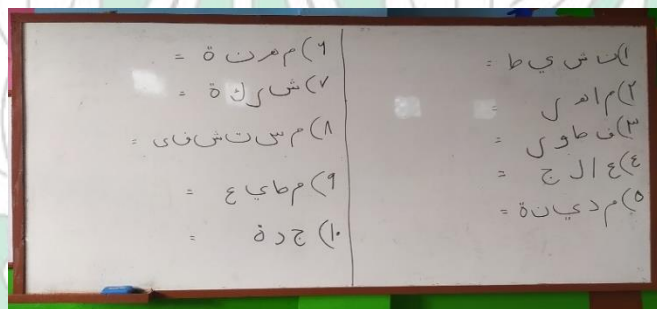 ١) ن ش ي ط =
٢) م ا ه ر =
٣) ف ط و ر =
٤) ع ا ل ج =
٥) م د ي ن ة =
٦) م ه ن ة =
٧) ش ر ك ة =
٨) م س ت ش ف ى =
٩) م ط ي ع =
١٠) ج د ة =